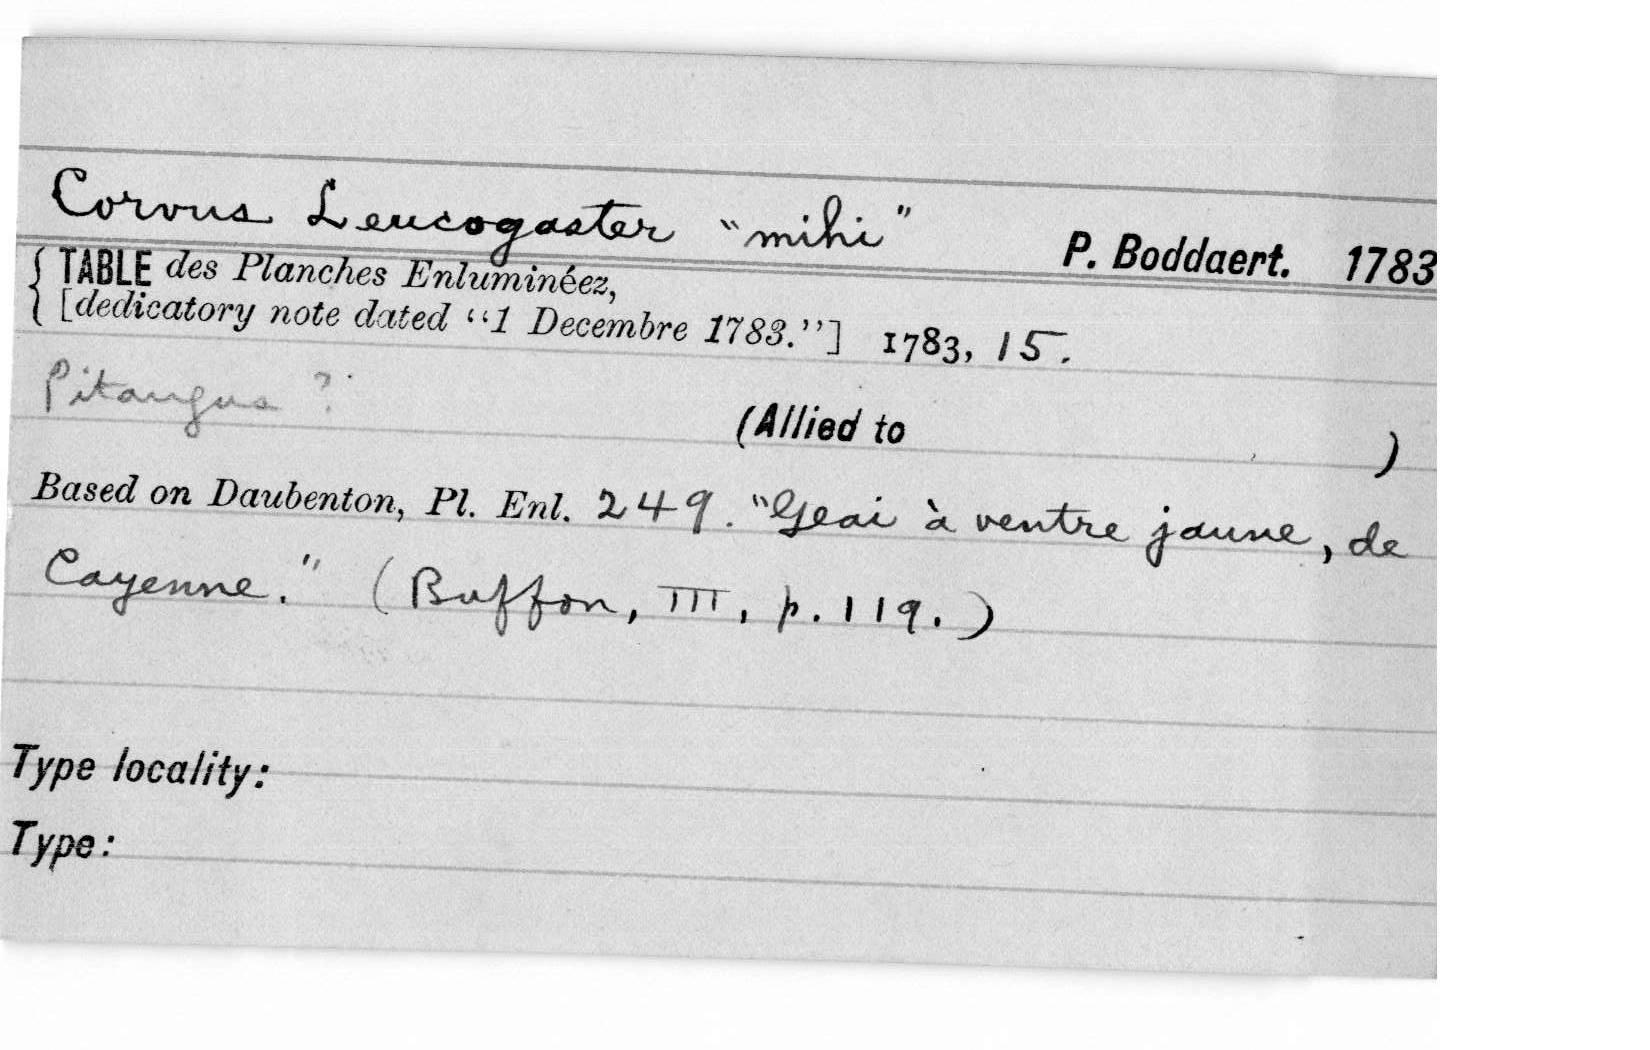 Corvus Leucogaster "mihi"
P. Boddaert. 1783
TABLE des Planches Enluminéez,
[dedicatory note dated "1 Decembre 1783."] 1783, 15.
Pitangus ?
(Allied to )
Based on Daubenton, Pl. Enl. 249. "Geai à ventre jaune, de
Cayenne." (Buffon, III, p. 119.)
Type locality:
Type: